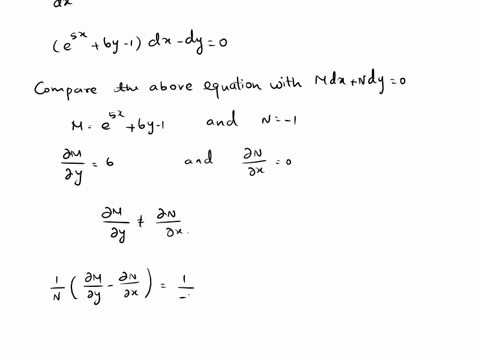 dx
(e^{5x} + 6y - 1) dx - dy = 0
Compare the above equation with Mdx + Ndy = 0
M = e^{5x} + 6y - 1 and N = -1
∂M/∂y = 6 and ∂N/∂x = 0
∂M/∂y ≠ ∂N/∂x.
1/N (∂M/∂y - ∂N/∂x) = 1/-